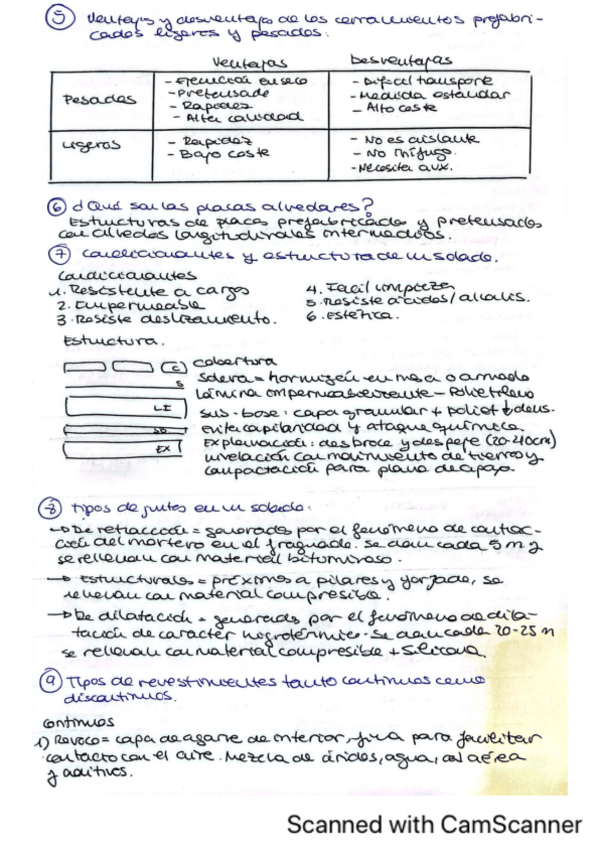 ⑤ Ventajas y desventajas de los cerramientos prefabri-
cados ligeros y pesados.
Ventajas Desventajas
Pesados
- Ejecución en seco
- Pretensado
- Rapidez
- Alta calidad
- Difícil transporte
- Medida estandar
- Alto coste
Ligeros
- Rapidez
- Bajo coste
- No es aislante
- No ifugo.
- Necesita aux.
⑥ ¿Qué son las placas alveolares?
Estructuras de placas prefabricadas y pretensadas
con alveolos longitudinales intermedios.
⑦ Condicionantes y estructura de un solado.
Condicionantes
1. Resistente a cargas
2. Impermeable
3. Resiste deslizamiento.
4. Facil limpieza
5. Resiste acidos/alcalis.
6. Estética.
Estructura.
C
S
LI
SB
EX
cobertura
Solera = hormigón en masa o armado
Lámina impermeabilizante - Polietileno
Sub-base: capa granular + poliet ↓ dens.
evita capilaridad y ataque química
Explanación: desbroce y despeje (20-40cm)
nivelación con movimiento de tierras y
compactación para plano de apoyo.
⑧ Tipos de juntas en un solado.
→ De retracción = generadas por el fenómeno de contrac-
ción del mortero en el fraguado. Se dan cada 5 m y
se rellenan con material bituminoso.
→ Estructurales = próximos a pilares y forjado, se
rellenan con material compresible.
→ De dilatación = generadas por el fenómeno de dila-
tación de caracter higrotérmico. Se dan cada 20-25 m
se rellenan con material compresible + silicona.
⑨ Tipos de revestimientos tanto continuos como
discontinuos.
continuos
1) Revoco = capa de agarre de interior, fina para facilitar
contacto con el aire. Mezcla de áridos, agua, cal aérea
y aditivos.
Scanned with CamScanner